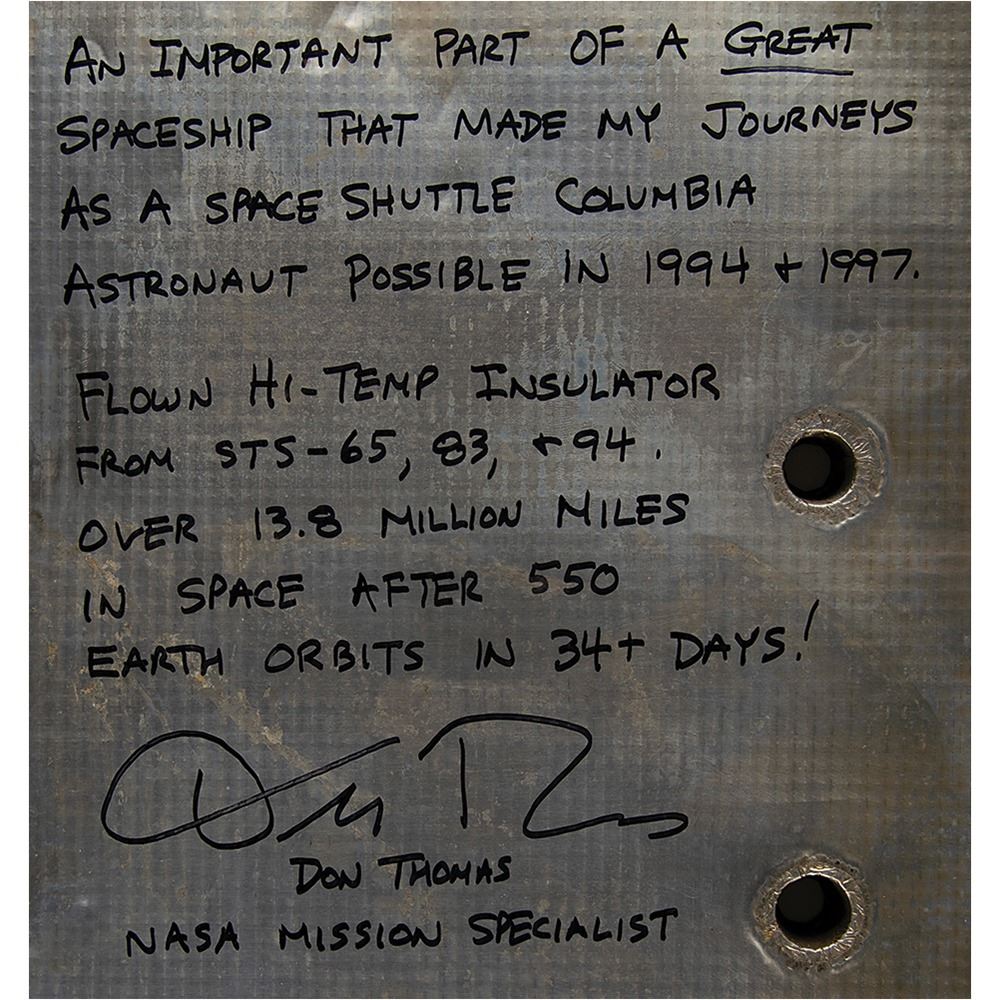 AN IMPORTANT PART OF A GREAT
SPACESHIP THAT MADE MY JOURNEYS
AS A SPACE SHUTTLE COLUMBIA
ASTRONAUT POSSIBLE IN 1994 + 1997.
FLOWN HI-TEMP INSULATOR
FROM STS-65, 83, + 94.
OVER 13.8 MILLION MILES
IN SPACE AFTER 550
EARTH ORBITS IN 34+ DAYS!
DON THOMAS
NASA MISSION SPECIALIST